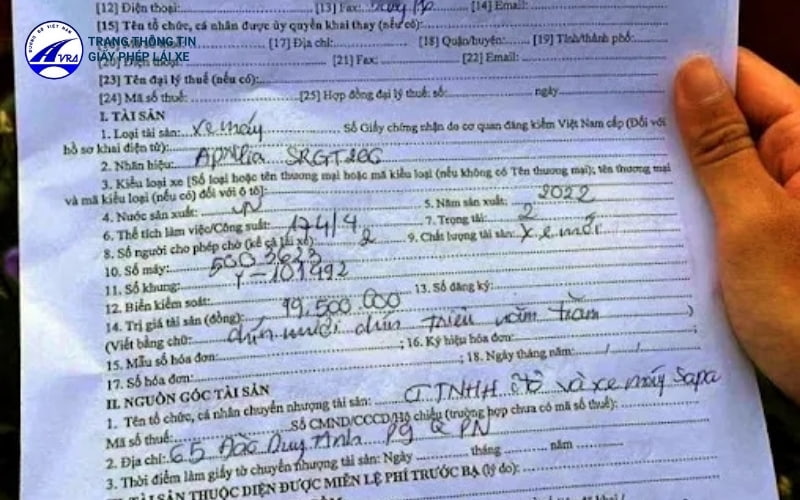 [12] Điện thoại: [13] Fax: [14] Email:
[15] Tên tổ chức, cá nhân được ủy quyền khai thay (nếu có):
ĐƯỜNG BỘ VIỆT NAM
VRA
TRANG THÔNG TIN
GIẤY PHÉP LÁI XE
[17] Địa chỉ: [18] Quận/huyện: [19] Tỉnh/thành phố:
[20] Điện thoại: [21] Fax: [22] Email:
[23] Tên đại lý thuế (nếu có):
[24] Mã số thuế: [25] Hợp đồng đại lý thuế: số: ngày
I. TÀI SẢN
1. Loại tài sản: xe máy Số Giấy chứng nhận do cơ quan đăng kiểm Việt Nam cấp (Đối với
hồ sơ khai điện tử):
2. Nhãn hiệu: Aprilia SRGT200
3. Kiểu loại xe [Số loại hoặc tên thương mại hoặc mã kiểu loại (nếu không có Tên thương mại); tên thương mại
và mã kiểu loại (nếu có) đối với ô tô]:
4. Nước sản xuất: VN 5. Năm sản xuất: 2022
6. Thể tích làm việc/Công suất: 174/4 7. Trọng tải: 2
8. Số người cho phép chở (kể cả lái xe): 2 9. Chất lượng tài sản: xe mới
10. Số máy: 5003623
11. Số khung: Y-101492
12. Biển kiểm soát: 13. Số đăng ký:
14. Trị giá tài sản (đồng): 99,500.000
(Viết bằng chữ: chín mươi chín triệu năm trăm )
15. Mẫu số hóa đơn: ; 16. Ký hiệu hóa đơn:
17. Số hóa đơn: ; 18. Ngày tháng năm: / /
II. NGUỒN GỐC TÀI SẢN
1. Tên tổ chức, cá nhân chuyển nhượng tài sản: CTTNHH ôtô và xe máy Sapa
Mã số thuế: Số CMND/CCCD/Hộ chiếu (trường hợp chưa có mã số thuế):
2. Địa chỉ: 65 Đào Duy Anh P9 Q PN
3. Thời điểm làm giấy tờ chuyển nhượng tài sản: Ngày tháng năm
TÀI SẢN THUỘC DIỆN ĐƯỢC MIỄN LỆ PHÍ TRƯỚC BẠ (lý do):